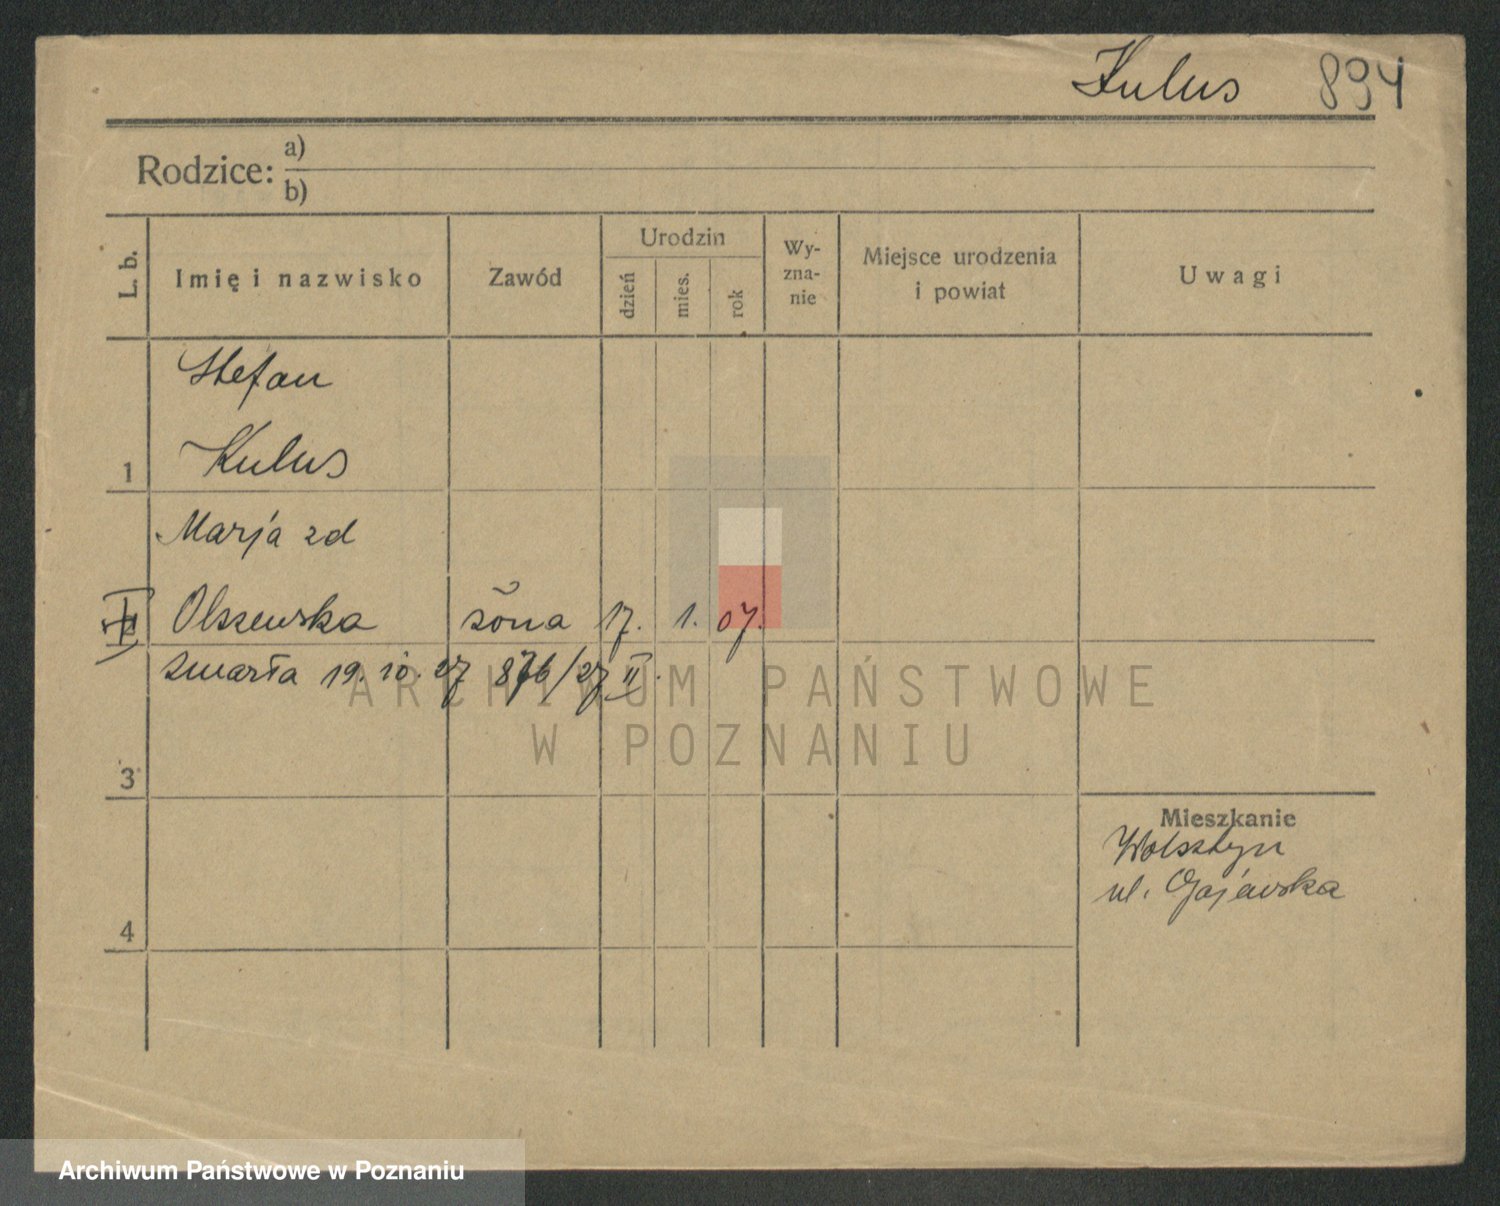 Kulus 894
Rodzice: a)
b)
L. b. Imię i nazwisko Zawód Urodzin dzień mies. rok Wy-zna-nie Miejsce urodzenia i powiat Uwagi
Stefan
1 Kulus
Marja zd
Olszewska żona 17. 1. 07.
zmarła 19. 10. 27 876/27 II.
3
Mieszkanie
Wolsztyn
ul. Gajewska
4
ARCHIWUM PAŃSTWOWE
W POZNANIU
Archiwum Państwowe w Poznaniu